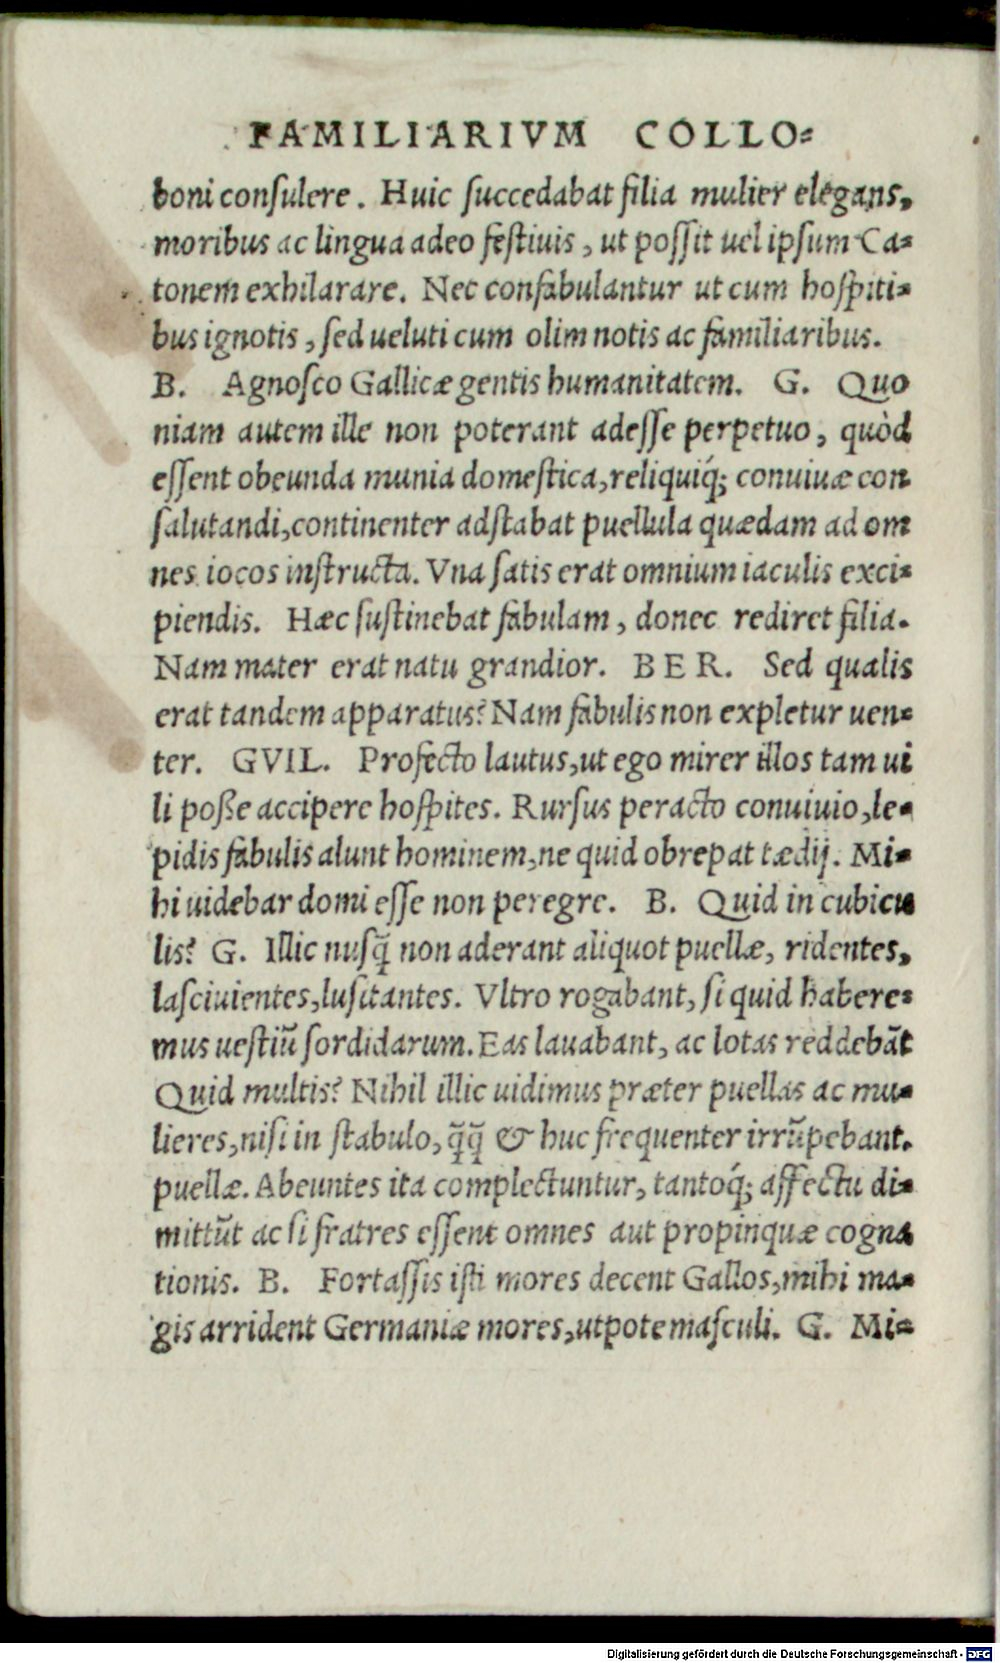 FAMILIARIVM COLLO⸗
boni conſulere. Huic ſuccedabat filia mulier elegans,
moribus ac lingua adeo feſtiuis, ut poſſit uel ipſum Ca⸗
tonem exhilarare. Nec confabulantur ut cum hoſpiti⸗
bus ignotis, ſed ueluti cum olim notis ac familiaribus.
B. Agnoſco Gallicæ gentis humanitatem. G. Quo
niam autem ille non poterant adeſſe perpetuo, quòd
eſſent obeunda munia domeſtica, reliquiq́; conuiuæ con
ſalutandi, continenter adſtabat puellula quædam ad om
nes iocos inſtructa. Vna ſatis erat omnium iaculis exci⸗
piendis. Hæc ſuſtinebat fabulam, donec rediret filia.
Nam mater erat natu grandior. BER. Sed qualis
erat tandem apparatus? Nam fabulis non expletur uen⸗
ter. GVIL. Profecto lautus, ut ego mirer illos tam ui
li poße accipere hoſpites. Rurſus peracto conuiuio, le⸗
pidis fabulis alunt hominem, ne quid obrepat tædij. Mi⸗
hi uidebar domi eſſe non peregre. B. Quid in cubicu
lis? G. Illic nuſq̃ non aderant aliquot puellæ, ridentes,
laſciuientes, luſitantes. Vltro rogabant, ſi quid habere⸗
mus ueſtiũ ſordidarum. Eas lauabant, ac lotas reddebãt
Quid multis? Nihil illic uidimus præter puellas ac mu⸗
lieres, niſi in ſtabulo, q̃q̃ & huc frequenter irrũpebant.
puellæ. Abeuntes ita complectuntur, tantoq́; affectu di⸗
mittũt ac ſi fratres eſſent omnes aut propinquæ cogna
tionis. B. Fortaſſis iſti mores decent Gallos, mihi ma⸗
gis arrident Germaniæ mores, utpote maſculi. G. Mi⸗
Digitalisierung gefördert durch die Deutsche Forschungsgemeinschaft - DFG